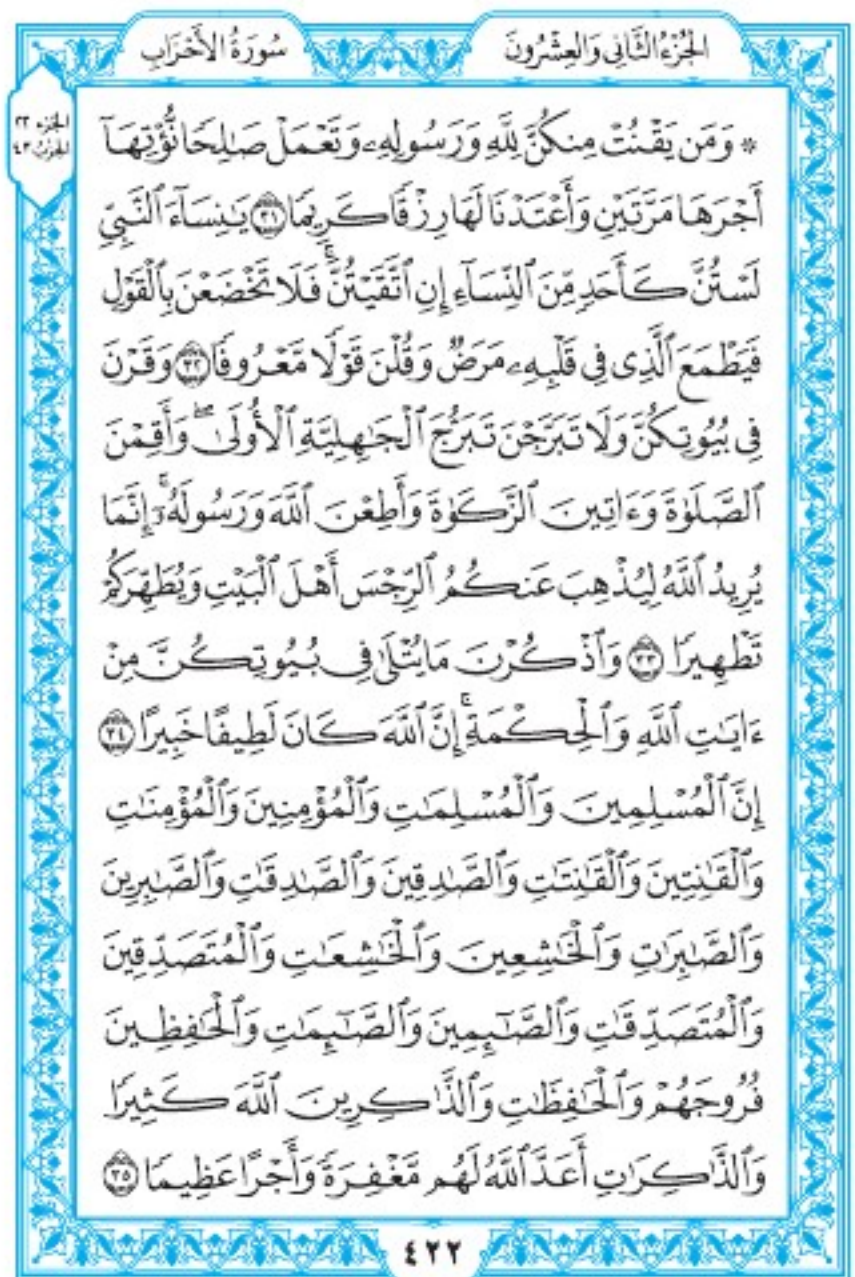 سُورَةُ الأَحْزَابِ
الجُزْءُ الثَّانِي وَالعِشْرُونَ
الجزء ٢٢
الحزب ٤٣
* وَمَن يَقْنُتْ مِنكُنَّ لِلَّهِ وَرَسُولِهِۦ وَتَعْمَلْ صَٰلِحًا نُّؤْتِهَآ
أَجْرَهَا مَرَّتَيْنِ وَأَعْتَدْنَا لَهَا رِزْقًا كَرِيمًا ٣١ يَٰنِسَآءَ ٱلنَّبِيِّ
لَسْتُنَّ كَأَحَدٍ مِّنَ ٱلنِّسَآءِ إِنِ ٱتَّقَيْتُنَّۚ فَلَا تَخْضَعْنَ بِٱلْقَوْلِ
فَيَطْمَعَ ٱلَّذِى فِى قَلْبِهِۦ مَرَضٌ وَقُلْنَ قَوْلًا مَّعْرُوفًا ٣٢ وَقَرْنَ
فِى بُيُوتِكُنَّ وَلَا تَبَرَّجْنَ تَبَرُّجَ ٱلْجَٰهِلِيَّةِ ٱلْأُولَىٰۖ وَأَقِمْنَ
ٱلصَّلَوٰةَ وَءَاتِينَ ٱلزَّكَوٰةَ وَأَطِعْنَ ٱللَّهَ وَرَسُولَهُۥٓۚ إِنَّمَا
يُرِيدُ ٱللَّهُ لِيُذْهِبَ عَنكُمُ ٱلرِّجْسَ أَهْلَ ٱلْبَيْتِ وَيُطَهِّرَكُمْ
تَطْهِيرًا ٣٣ وَٱذْكُرْنَ مَا يُتْلَىٰ فِى بُيُوتِكُنَّ مِنْ
ءَايَٰتِ ٱللَّهِ وَٱلْحِكْمَةِۚ إِنَّ ٱللَّهَ كَانَ لَطِيفًا خَبِيرًا ٣٤
إِنَّ ٱلْمُسْلِمِينَ وَٱلْمُسْلِمَٰتِ وَٱلْمُؤْمِنِينَ وَٱلْمُؤْمِنَٰتِ
وَٱلْقَٰنِتِينَ وَٱلْقَٰنِتَٰتِ وَٱلصَّٰدِقِينَ وَٱلصَّٰدِقَٰتِ وَٱلصَّٰبِرِينَ
وَٱلصَّٰبِرَٰتِ وَٱلْخَٰشِعِينَ وَٱلْخَٰشِعَٰتِ وَٱلْمُتَصَدِّقِينَ
وَٱلْمُتَصَدِّقَٰتِ وَٱلصَّٰٓئِمِينَ وَٱلصَّٰٓئِمَٰتِ وَٱلْحَٰفِظِينَ
فُرُوجَهُمْ وَٱلْحَٰفِظَٰتِ وَٱلذَّٰكِرِينَ ٱللَّهَ كَثِيرًا
وَٱلذَّٰكِرَٰتِ أَعَدَّ ٱللَّهُ لَهُم مَّغْفِرَةً وَأَجْرًا عَظِيمًا ٣٥
٤٢٢